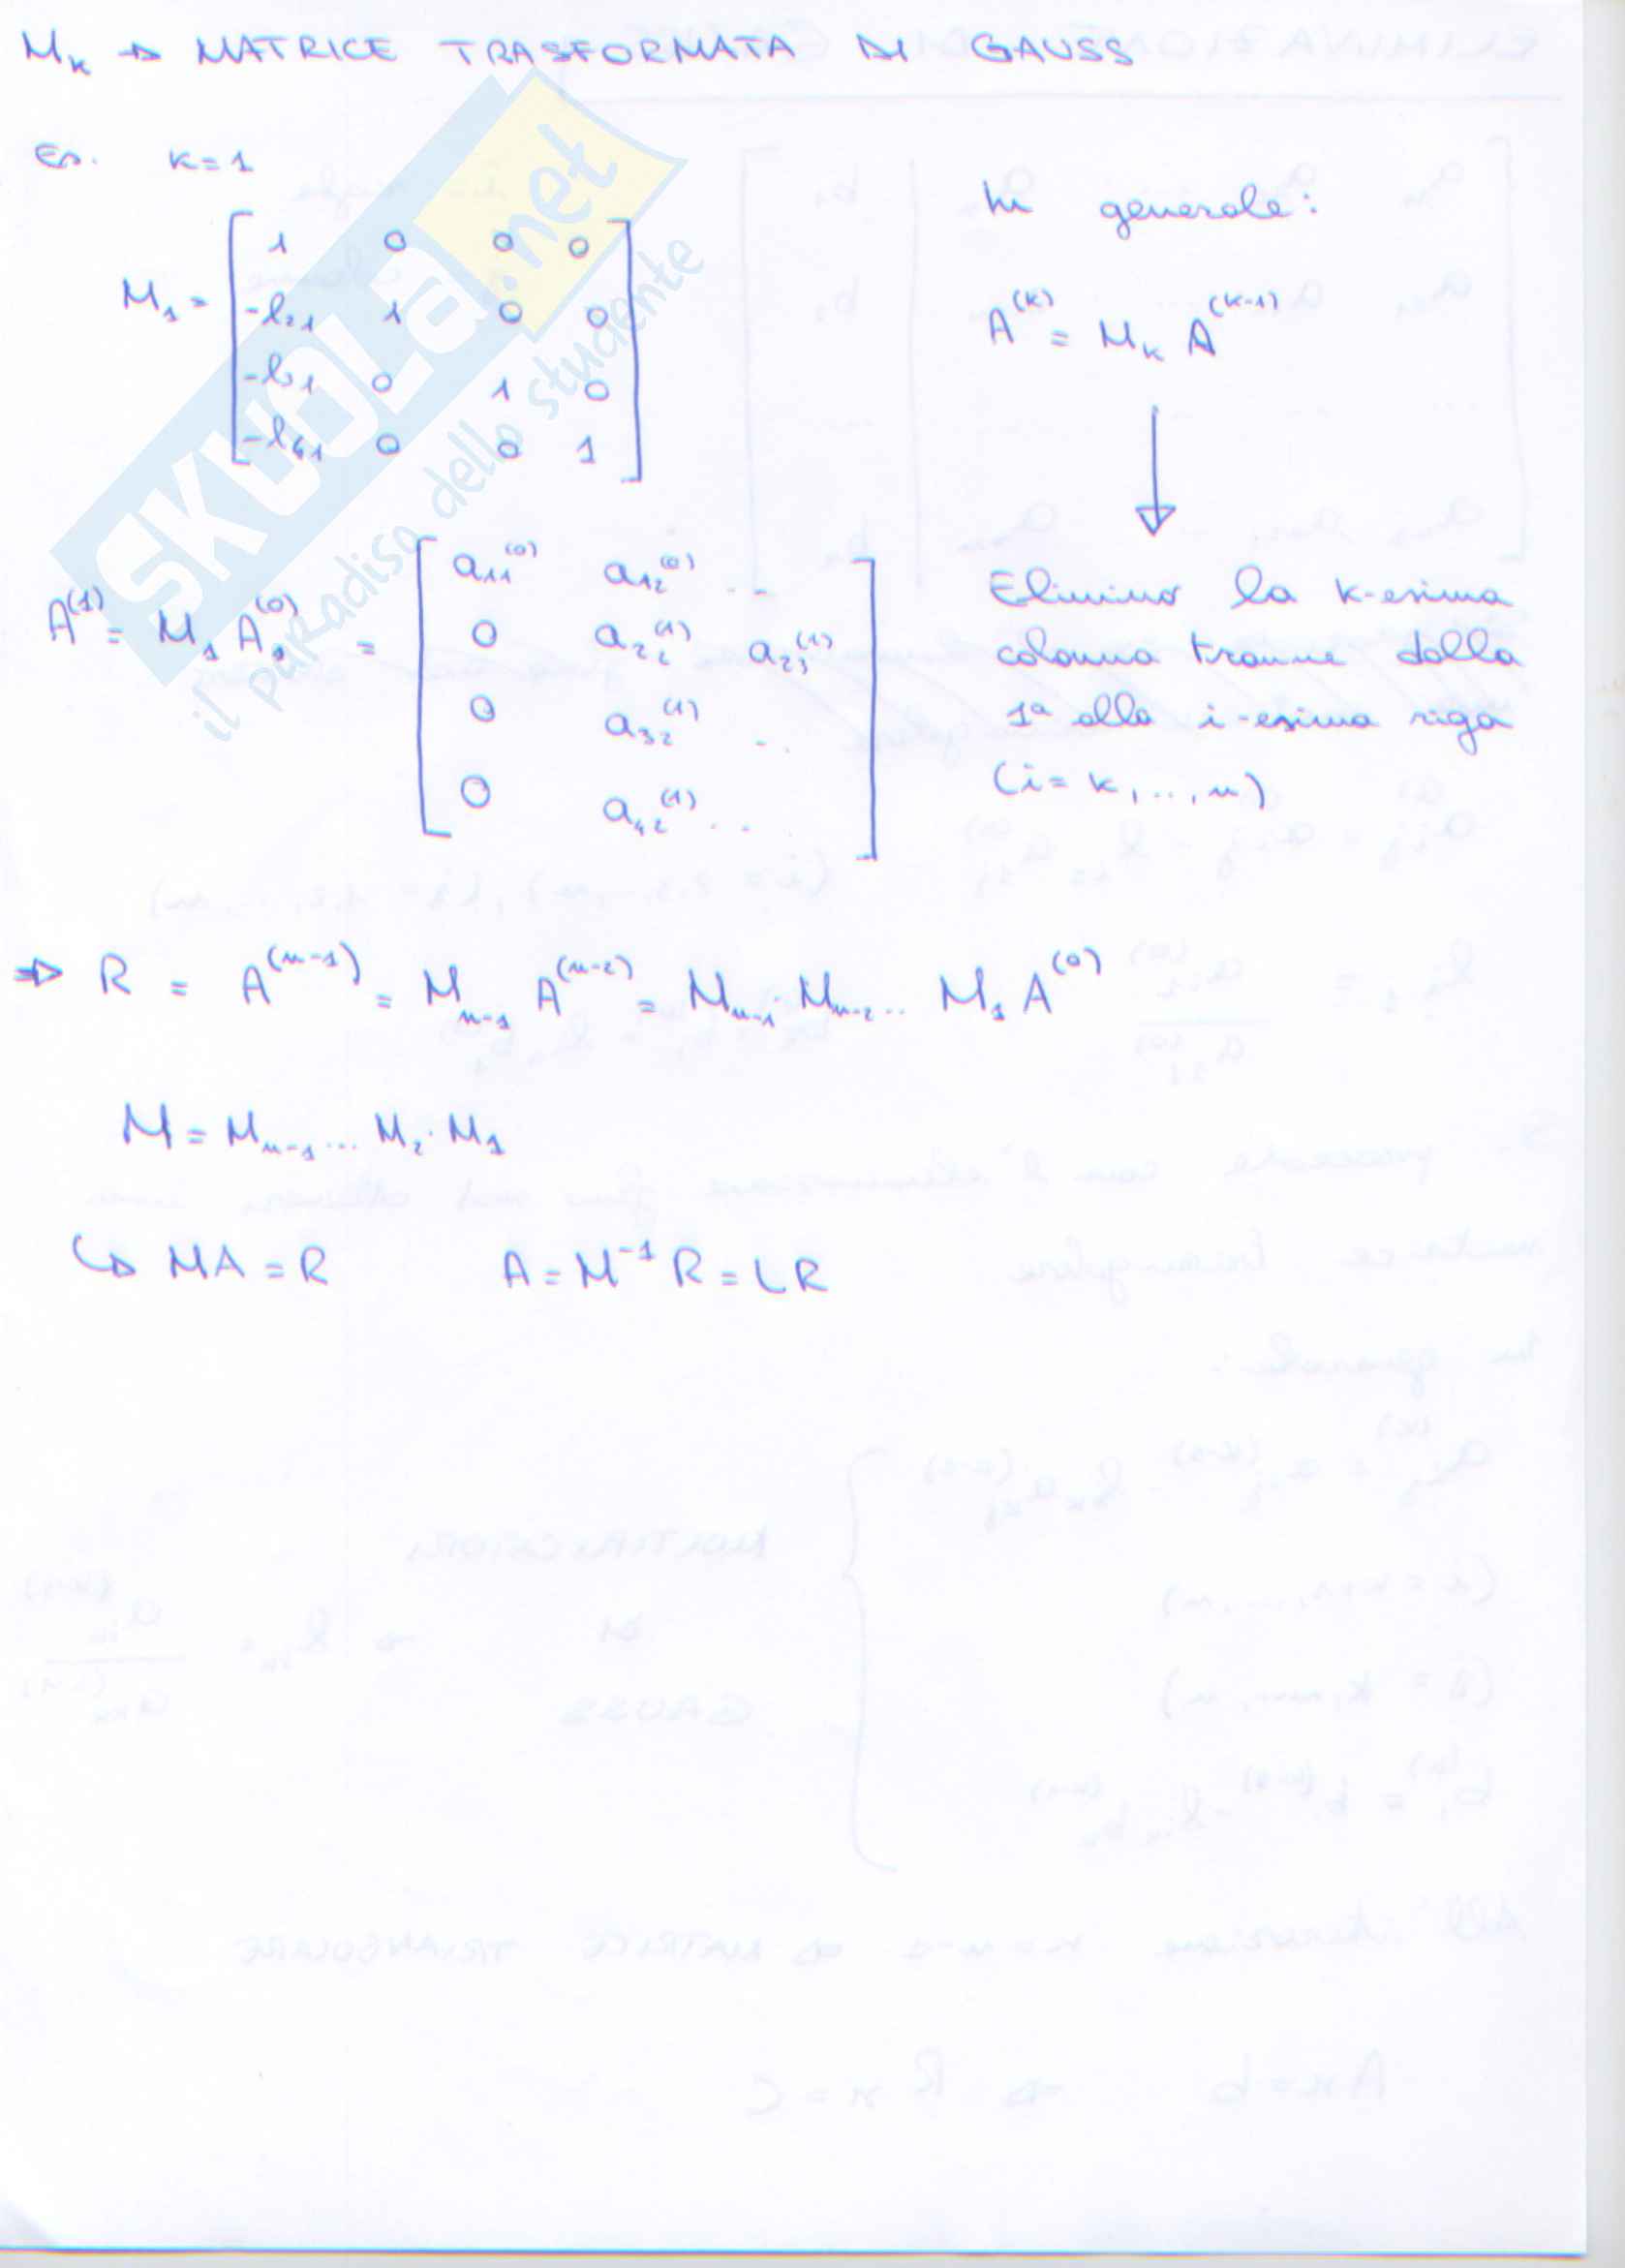 M_k → MATRICE TRASFORMATA DI GAUSS
Es. k=1
M_1 = [ 1 0 0 0
-l_21 1 0 0
-l_31 0 1 0
-l_41 0 0 1 ]
In generale:
A^(k) = M_k A^(k-1)
↓
Elimino la k-esima
colonna tranne dalla
1ª alla i-esima riga
(i= k, .., n)
A^(1) = M_1 A_1^(0) = [ a_11^(0) a_12^(0) ..
0 a_22^(1) a_23^(1)
0 a_32^(1) ..
0 a_42^(1) .. ]
⇒ R = A^(n-1) = M_n-1 A^(n-2) = M_n-1 · M_n-2 ... M_1 A^(0)
M = M_n-1 ... M_2 · M_1
↳ MA = R A = M^-1 R = LR
SKUOLA.net
il paradiso dello studente